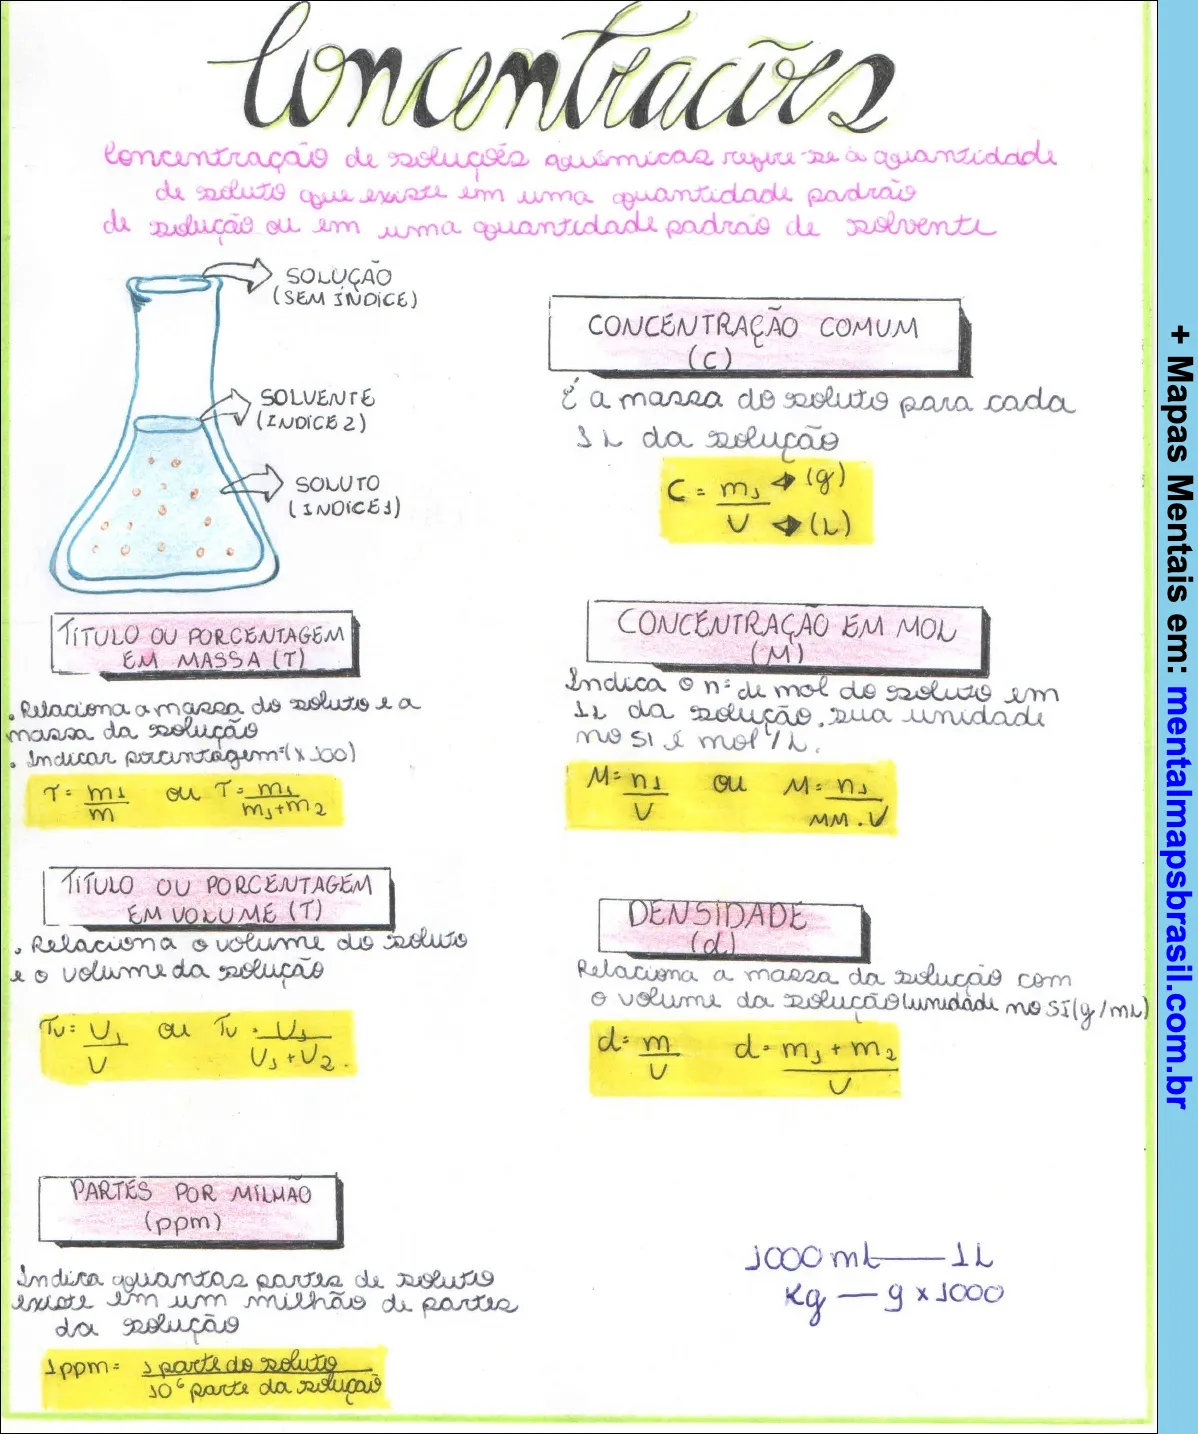 Concentrações
Concentração de soluções químicas refere-se à quantidade
de soluto que existe em uma quantidade padrão
de solução ou em uma quantidade padrão de solvente
SOLUÇÃO
(SEM ÍNDICE)
SOLVENTE
(ÍNDICE 2)
SOLUTO
(ÍNDICE 1)
CONCENTRAÇÃO COMUM
(C)
É a massa do soluto para cada
1 L da solução
C = m1 (g)
V (L)
TÍTULO OU PORCENTAGEM
EM MASSA (T)
. Relaciona a massa do soluto e a
massa da solução
. Indicar porcentagem (x 100)
T = m1 ou T = m1
m m1 + m2
CONCENTRAÇÃO EM MOL
(M)
Indica o nº de mol do soluto em
1L da solução, sua unidade
no SI é mol/L.
M = n1 ou M = n1
V MM . V
TÍTULO OU PORCENTAGEM
EM VOLUME (T)
. Relaciona o volume do soluto
e o volume da solução
Tv = V1 ou Tv = V1
V V1 + V2.
DENSIDADE
(d)
Relaciona a massa da solução com
o volume da solução (unidade no SI (g/mL)
d = m d = m1 + m2
V V
PARTES POR MILHÃO
(ppm)
Indica quantas partes de soluto
existe em um milhão de partes
da solução
1 ppm = 1 parte do soluto
10⁶ parte da solução
1000 mL — 1 L
Kg — g x 1000
+ Mapas Mentais em: mentalmapsbrasil.com.br